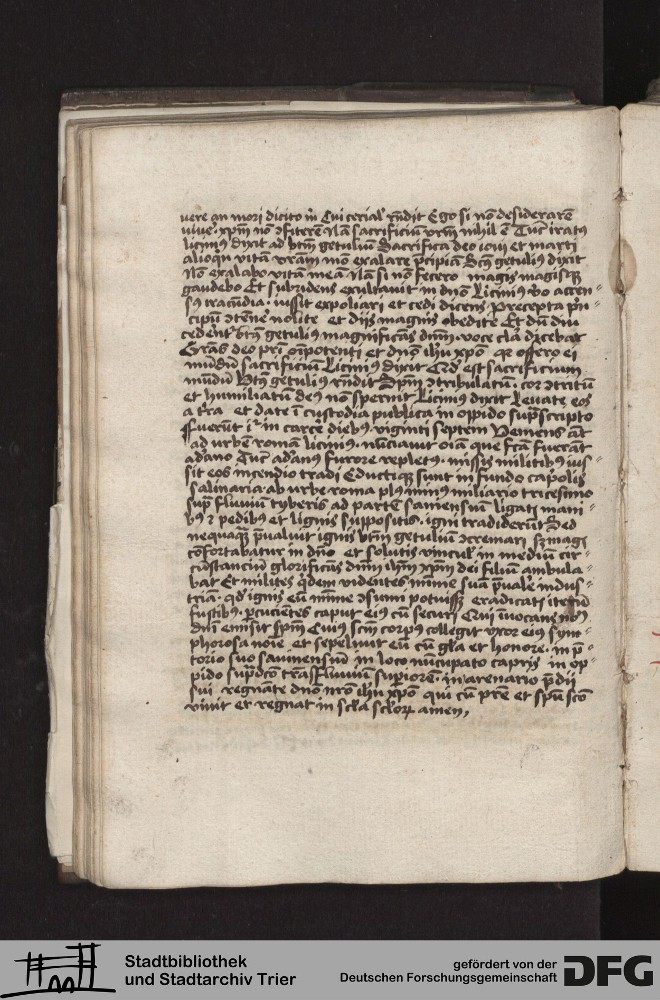 uere an mori dicito m̄ Cui cerial' rñdit Ego si nō desiderarē
uiue' xp̄m nō ꝯfiterēr Nā sacrificiū vr̄m nihil ē Tūc iratꝰ
liciniꝰ dixit ad btm̄ getuliū Sacrifica deo ioui et marti
alioqn̄ vitā vr̄am mō exalare p̄cipiā Scūs getuliꝰ dixit
Nō exalabo vitā meā Nā si nō fecero magis magisqꝫ
gaudebo Et subridens exultauit in dn̄o Liciniꝰ v̊o accen⸗
sꝰ iracūdia iussit expoliari et cedi dicens Precepta pn̄⸗
cipū ꝯtēne' nolite et dijs magnis obedite Et dū diu
cederēt' btꝰ getuliꝰ magnificās dn̄m voce clā dicebat
Gr̄as deo pr̄i oīpotenti et dn̄o ih̄u xp̄o qꝛ offero ei
mūdū sacrificiū Liciniꝰ dixit Qd' est sacrificium
mūdū Btꝰ getuliꝰ rñdit Sp̄m ꝯtribulatū cor ꝯtritū
et humiliatū deꝰ nō spernit Liciniꝰ dixit Leuate eos
a t'ra et date ī custodia publica in oppido sup̄scripto
Fuerūt iḡ in carcē diebꝰ viginti septem Veniens āt
ad vrbē romā liciniꝰ nūciauit oīa que fc̄a fuerāt
ad'ano Tūc ad'anꝰ furore repletꝰ missis militibꝰ ius⸗
sit eos incendio tradi Eductiqꝫ sunt in fundo capolis
salinaria ab vrbe roma plꝰ minꝰ miliario tricesimo
sup̄ fluuiū tyberis ad partē saniensiū ligatꝭ mani⸗
bꝰ ⁊ pedibꝰ et lignis suppositis igni tradiderūt Sed
nequaqꝫ p̄ualuit ignis btm̄ getuliū ꝯcremarj sꝫ magꝭ
cōfortabatur in dn̄o et solutis vincul' in mediū cir⸗
cūstanciū glorificās dn̄m ih̄m xp̄m dei filiū ambula⸗
bat Et milites qdem videntes mīme suā p̄uale' indus⸗
triā qd' ignis eū mīme ꝯsumi potuissꝫ eradicatꝭ iterū
fustibꝰ ꝑcucientes caput eiꝰ cū securi Qui īuocans noīs
dn̄i emisit sp̄m Cuiꝰ scm̄ corpꝰ collegit vxor eiꝰ sym⸗
phorosa noīe et sepeliuit eū cū gl̄a et honore in p̄⸗
torio suo sauinensiū in loco nūcupato capris in op⸗
pido sup̄dcō trās fluuiū sup̄iorē in arenario p̄dij
sui regnāte dn̄o nr̄o ih̄u xp̄o qui cū pr̄e et sp̄u scō
viuit et regnat in sc̄la sc̄lorꝫ amen,
Stadtbibliothek
und Stadtarchiv Trier
gefördert von der
Deutschen Forschungsgemeinschaft
DFG